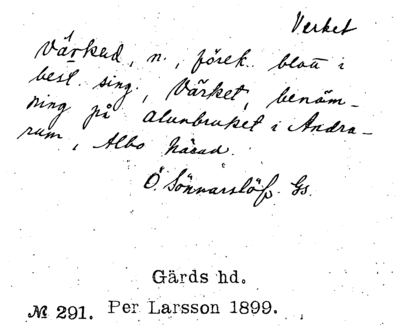 Verket
Värkad, n., förek. blott i
best. sing., Värket, benäm-
ning på alunbruket i Andra-
rum, Albo härad.
Ö. Sönnarslöf. Gs.
Gärds hd.
№ 291. Per Larsson 1899.